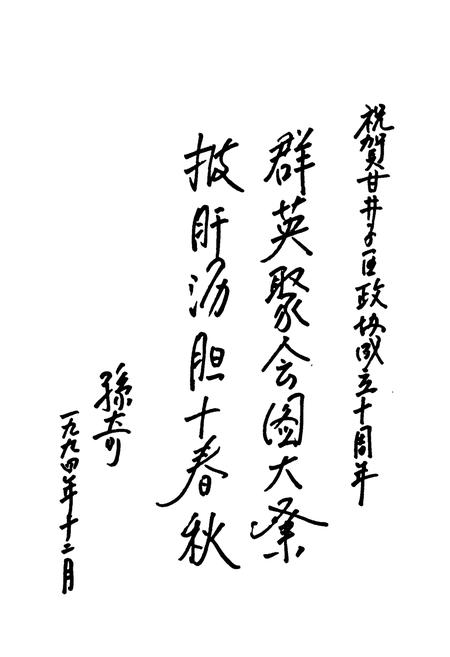 祝賀甘井子区政协成立十周年
群英聚会图大業
披肝沥胆十春秋
孫奇
一九九四年十二月